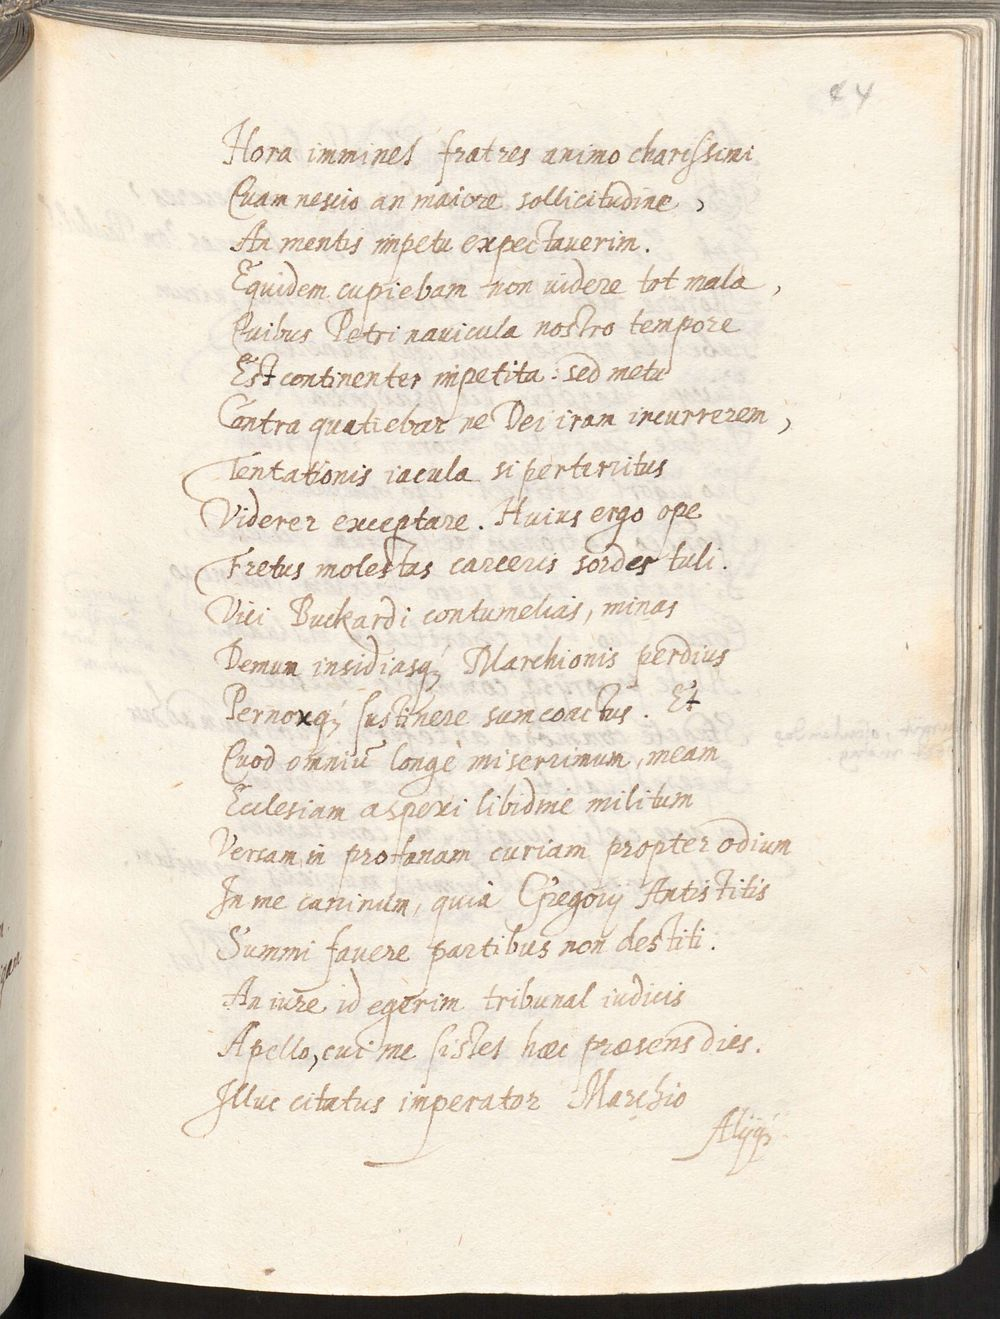 24
Hora imminet fratres animo charissimi
Quam nescio an maiore sollicitudine,
An mentis impetu expectauerim.
Equidem cupiebam non videre tot mala,
Quibus Petri nauicula nostro tempore
Est continenter impetita: sed metu
Contra quatiebar ne Dei iram incurrerem,
Tentationis iacula si perterritus
Viderer exceptare. Huius ergo ope
Fretus molestas carceris sordes tuli.
Vici Buckardi contumelias, minas
Demum insidiasq; Marchionis perdius
Pernoxq; sustinere sum coactus. Et
Quod omniū longè miserrimum, meam
Ecclesiam aspexi libidine militum
Versam in profanam curiam propter odium
In me caninum, quia Gregorij Antistitis
Summi fauere partibus non destiti.
An iure id egerim tribunal iudicis
Apello, cui me sistet hæc præsens dies.
Illuc citatus imperator Marchio
Alijq;